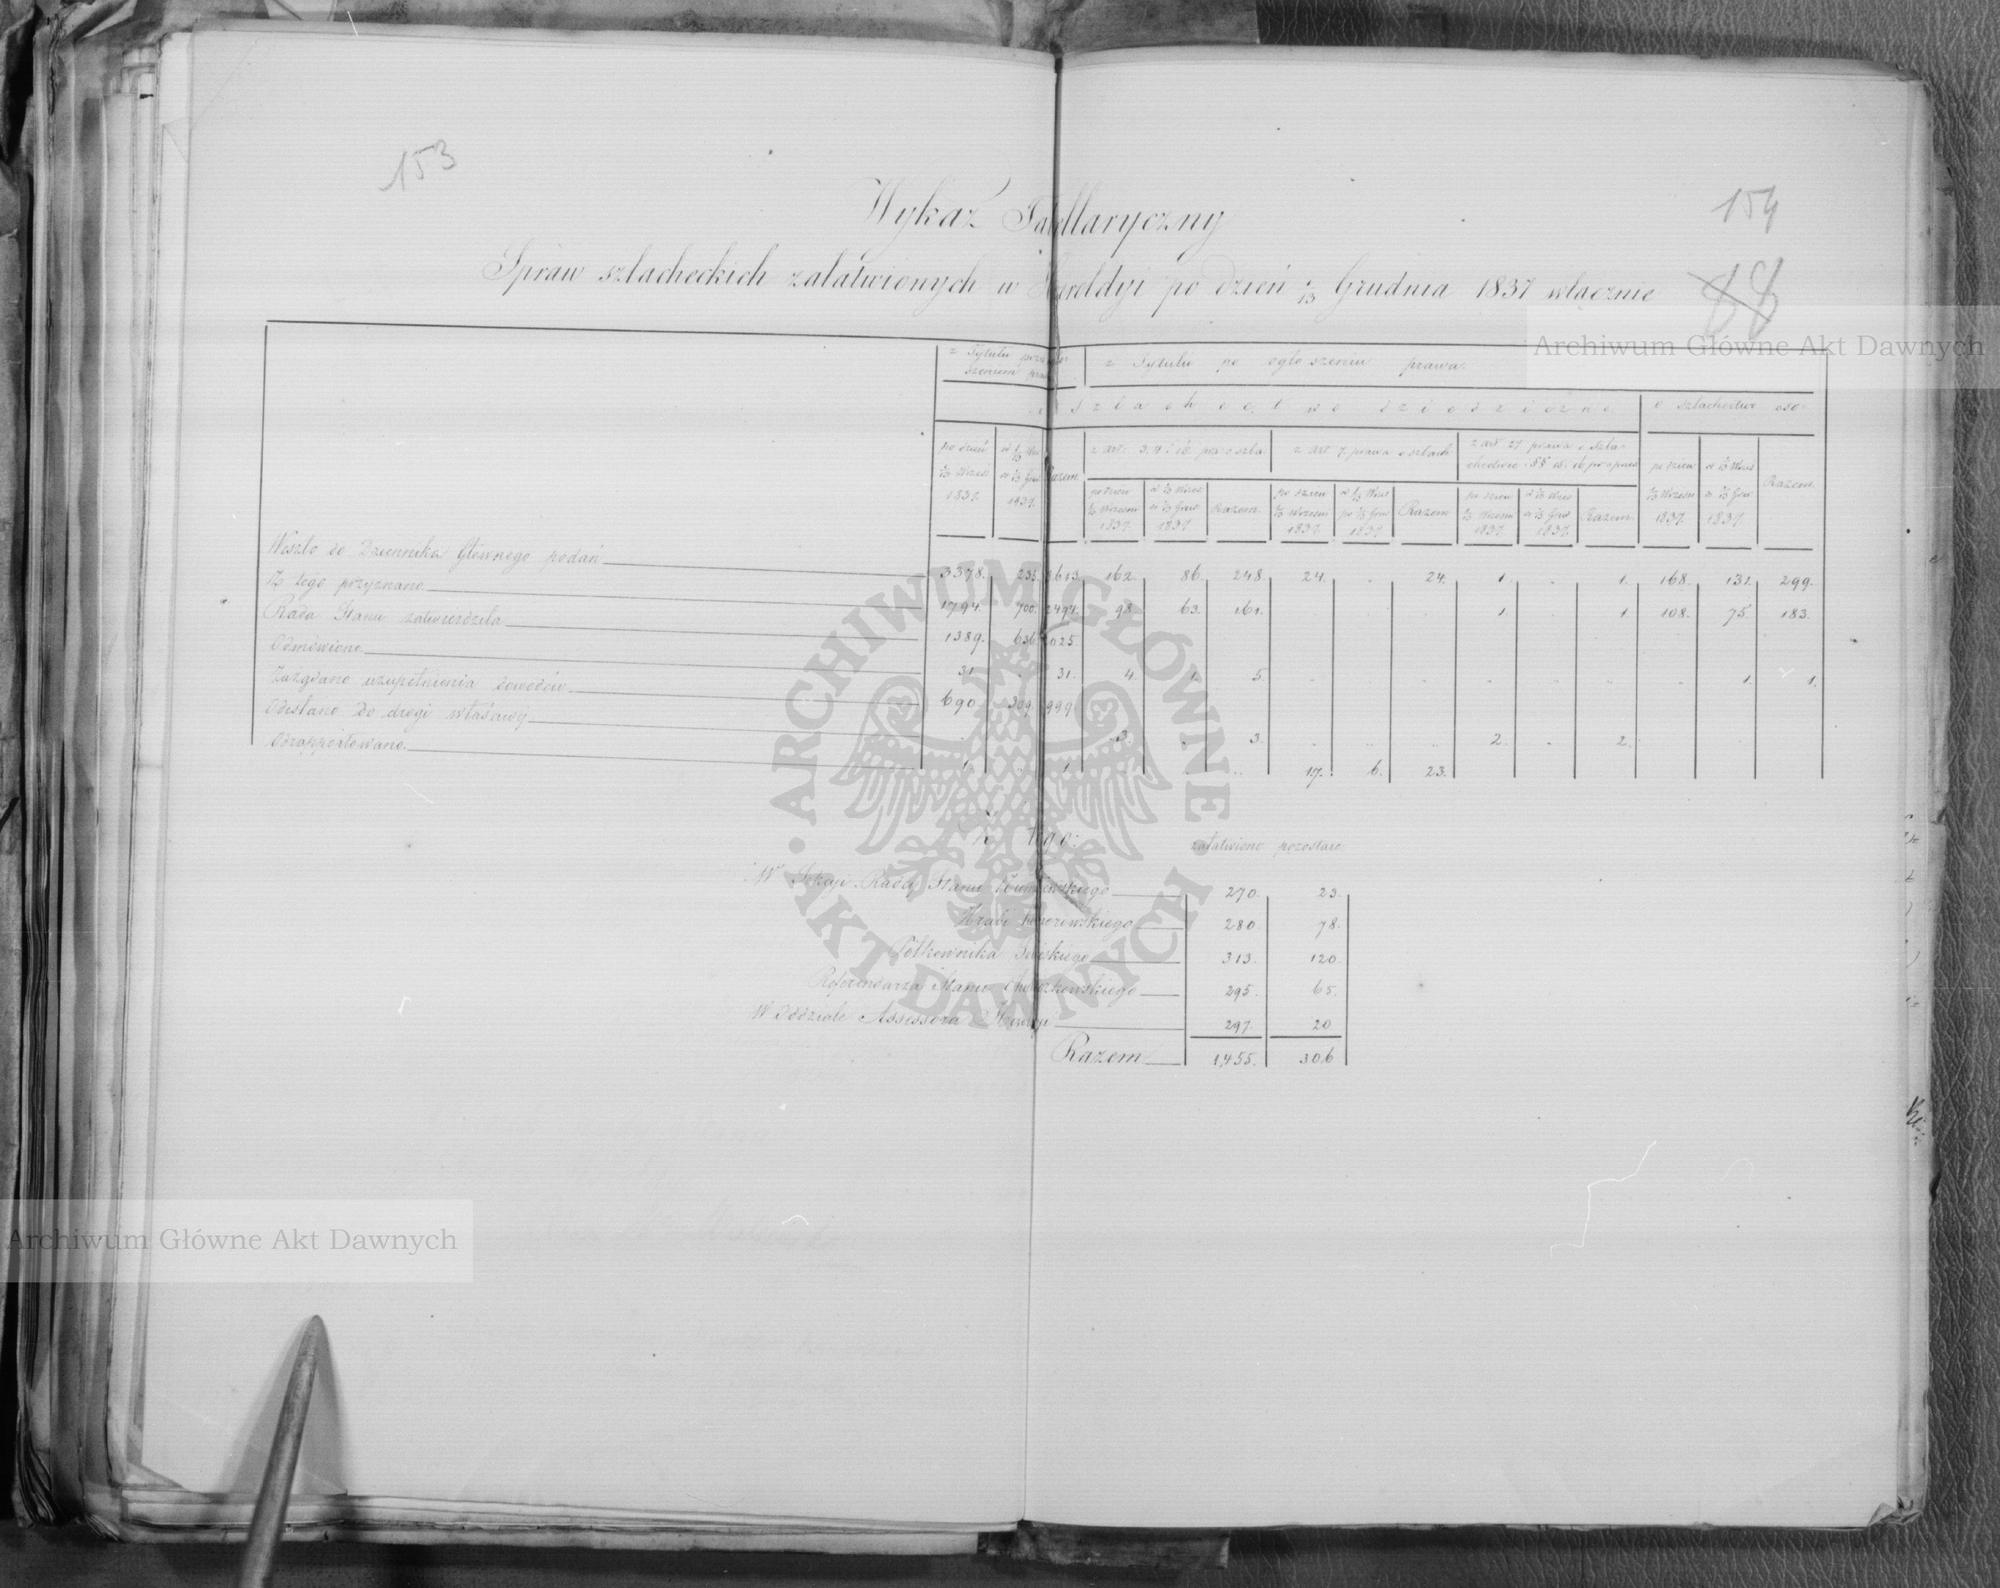 153
154
88
Wykaz Tabellaryczny
Spraw szlacheckich załatwionych w Heroldyi po dzień 1/13 Grudnia 1837 włącznie
Archiwum Główne Akt Dawnych
z Tytułu przed ogłoszeniem prawa
z Tytułu po ogłoszeniu prawa.
o szlachectwo dziedziczne
o szlachectwo oso-
z art. 3, 4 i
z art 7. prawa o szlach
z art 27 prawa o szlachectwie
po dzień 1/13 Wrześ 1837. | od 1/13 Wrz do 1/13 Gru 1837. | Razem. | po dzień 1/13 Wrześni 1837. | od 1/13 Wrześ do 1/13 Grud 1837. | Razem. | po dzień 1/13 Wrześni 1837. | od 1/13 Wrześ po 1/13 Gru 1837. | Razem | po dzień 1/13 Wrześni 1837. | od 1/13 Wrześ do 1/13 Grud 1837. | Razem. | po dzień 1/13 Wrześni 1837. | od 1/13 Wrześ do 1/13 Gru 1837. | Razem.
Weszło do Dziennika Głównego podań 3378. 235. 3613. 162. 86. 248 24. . 24. 1. . 1. 168. 131. 299.
Z tego przyznano 1794. 700. 2494. 98. 63. 161. 1. 1. 108. 75. 183.
Rada Stanu zatwierdziła 1389. 636. 2025.
Odmówiono 31. . 31. 4. 1. 5. 1. 1.
Zażądano uzupełnienia dowodów 690. 309. 999.
Odesłano do drogi właściwej 3. 3. 2. 2.
Odrapportowano. 1. . 1. 17. 6. 23.
Z tego:
załatwiono pozostaie
W Sekcyi Radcy Stanu 270. 23.
Hrabi 280. 78.
Półkownika 313. 120.
Referendarza Stanu 295. 65.
W Oddziale Assessora 297. 20
Razem 1,455. 306
ARCHIWUM GŁÓWNE AKT DAWNYCH
Archiwum Główne Akt Dawnych